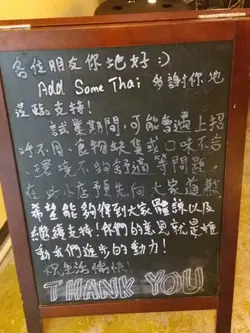 各位朋友你地好 :)
Add Some Thai 多謝你地
蒞臨支持!
試業期間,可能會遇上招
呼不周,食物缺售或口味不合
、環境不夠舒適等問題,
在此小店預先向大家道歉
希望能夠得到大家體諒以及
繼續支持!你們的意見就是推
動我們進步的動力!
祝生活愉快!
THANK YOU